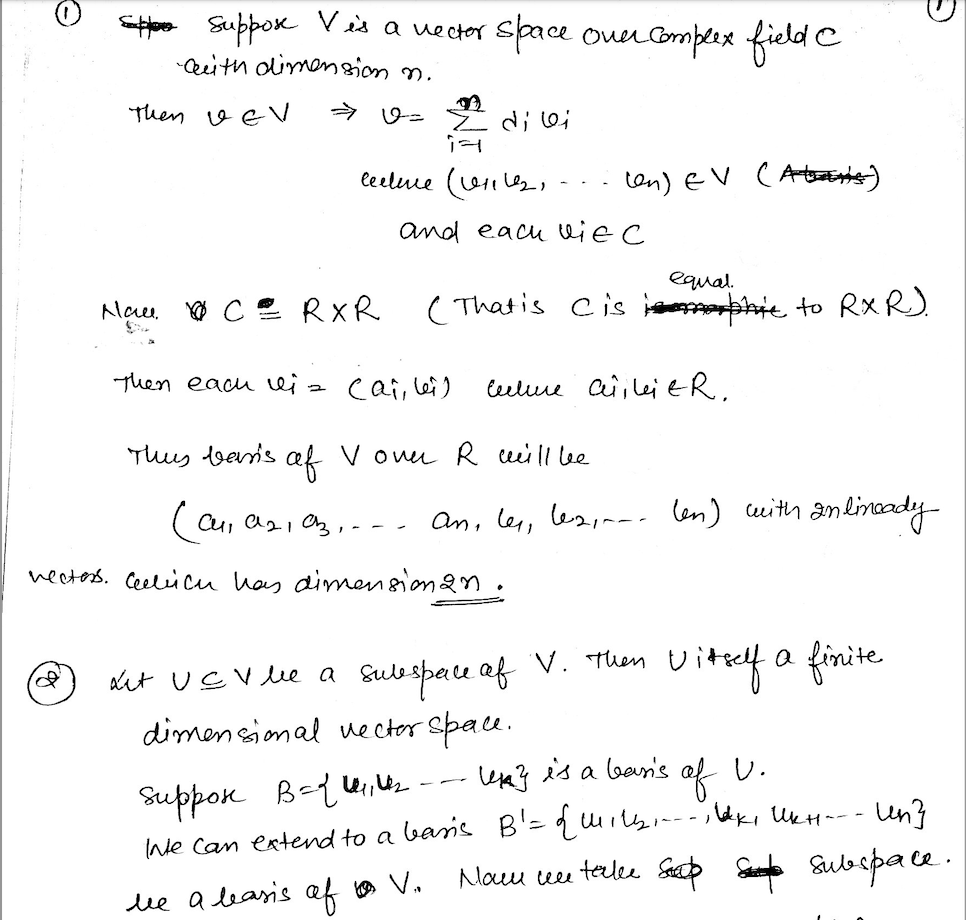 ① Suppose V is a vector space over complex field C ①
with dimension n.
Then v ∈ V ⇒ v = n∑i=1 αi vi
where (v1, v2, ... vn) ∈ V (A basis)
and each vi ∈ C
equal.
Now C = R×R (That is C is isomorphic to R×R).
Then each vi = (ai, bi) where ai, bi ∈ R.
Thus basis of V over R will be
(a1, a2, a3, --- an, b1, b2, --- bn) with 2n linearly
vectors. which has dimension 2n.
② Let U ⊆ V be a subspace of V. Then U itself a finite
dimensional vector space.
Suppose B = {u1, u2 --- uk} is a basis of U.
We can extend to a basis B' = {u1, u2, ---, uk, uk+1 --- un}
be a basis of V. Now we take subspace.